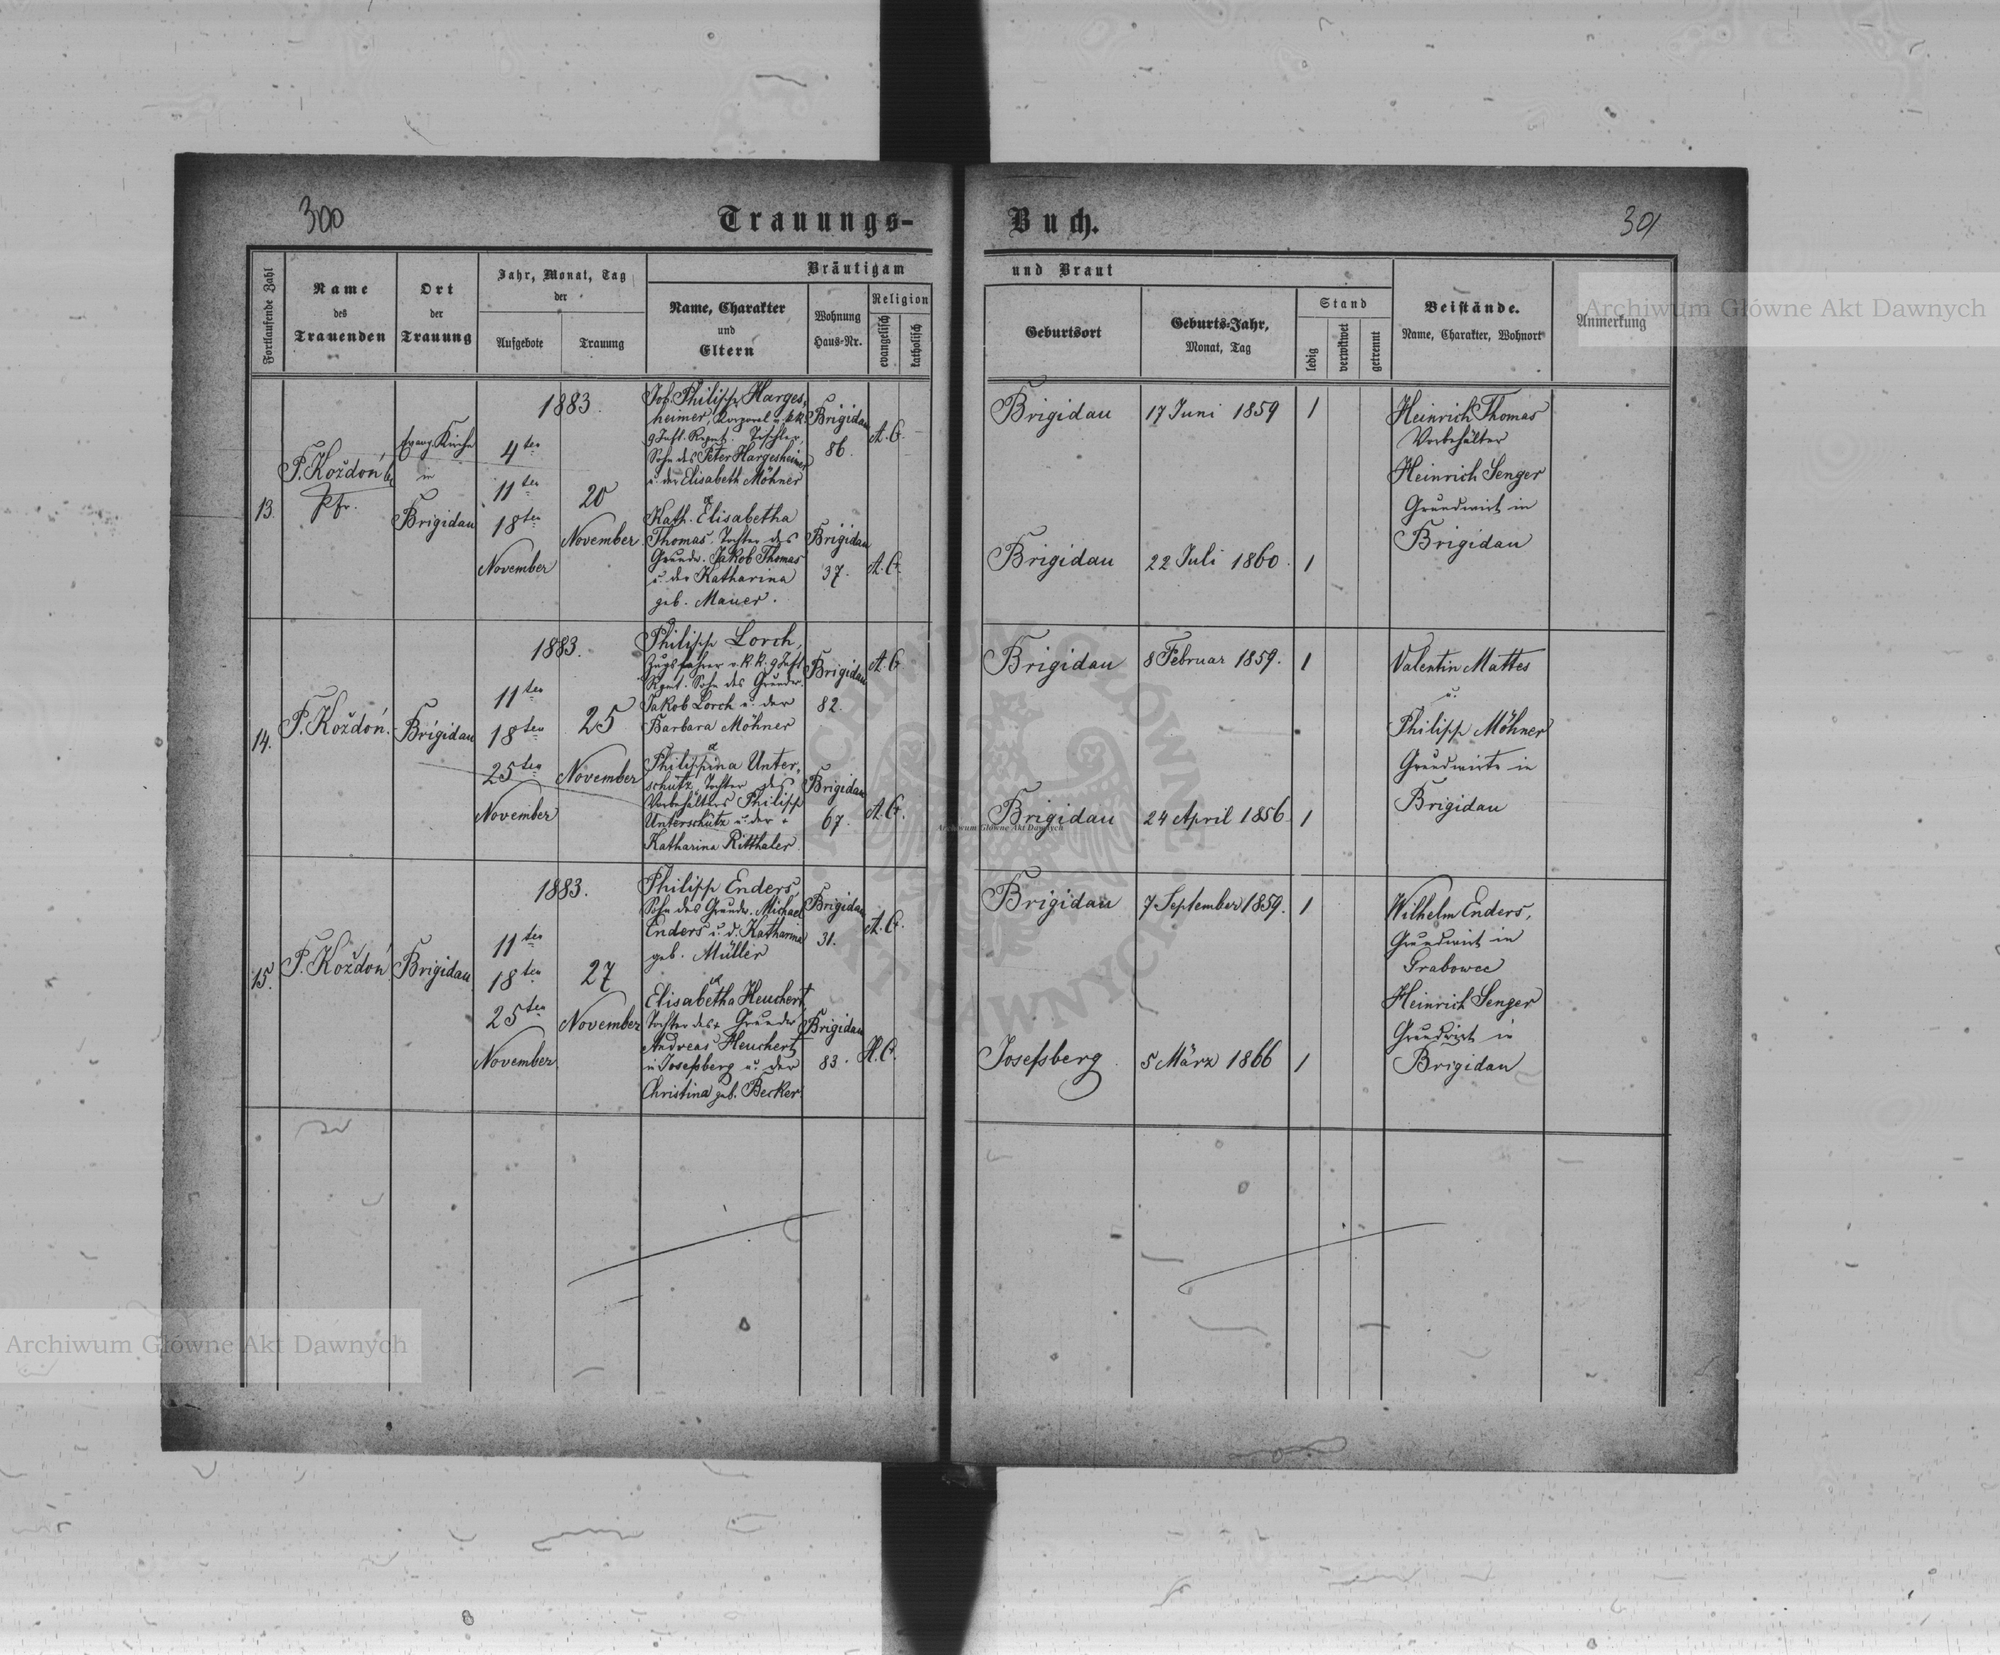 300
Trauungs-
Buch.
301
Fortlaufende Zahl
Name
des
Trauenden
Ort
der
Trauung
Jahr, Monat, Tag
der
Aufgebote
Trauung
Bräutigam
Name, Charakter
und
Eltern
Wohnung
Haus-Nr.
Religion
evangelisch
katholisch
und Braut
Geburtsort
Geburts-Jahr,
Monat, Tag
Stand
ledig
verwitwet
getrennt
Beistände.
Name, Charakter, Wohnort
Anmerkung
13.
P. Koždoń
Pfr.
Evang. Kirche
in
Brigidau
1883.
4ten
11ten
18ten
November
20
November
Joh. Philipp Harges-
heimer, Korporal v. k.k.
9 Inft. Regmt.
Sohn des Peter Hargesheimer
u. der Elisabeth Möhner
Kath. Elisabetha
Thomas. Tochter des
Grundw. Jakob Thomas
u. der Katharina
geb. Mauer.
Brigidau
86.
A. C.
Brigidau
37.
A. C.
Brigidau
17 Juni 1859
1
Brigidau
22 Juli 1860.
1
Heinrich Thomas
Vorbehälter
Heinrich Senger
Grundwirt in
Brigidau
14.
P. Koždoń.
Brigidau
1883.
11ten
18ten
25ten
November
25
November
Philipp Lorch,
Zugsführer v. k. k. 9 Inft
Rgmt. Sohn des Grundw.
Jakob Lorch u. der
Barbara Möhner
Philippina Unter-
schütz, Tochter des
Vorbehälters Philipp
Unterschütz u. der +
Katharina Ritthaler
Brigidau
82.
A. C.
Brigidau
67.
A. C.
Brigidau
8 Februar 1859.
1
Brigidau
24 April 1856.
1
Valentin Mattes
u.
Philipp Möhner
Grundwirte in
Brigidau
15.
P. Koždoń
Brigidau
1883.
11ten
18ten
25ten
November
27
November
Philipp Enders,
Sohn des Grundw. Michael
Enders u. d. Katharina
geb. Müller
Elisabetha Heuchert
Tochter des + Grundw
Andreas Heuchert
in Josefsberg u. der
Christina geb. Becker.
Brigidau
31.
A. C.
Brigidau
83.
H. C.
Brigidau
7 September 1859.
1
Josefsberg
5 März 1866
1
Wilhelm Enders,
Grundwirt in
Grabowce
Heinrich Senger
Grundwirt in
Brigidau
Archiwum Główne Akt Dawnych
Archiwum Główne Akt Dawnych
Archiwum Główne Akt Dawnych
ARCHIWUM GŁÓWNE AKT DAWNYCH